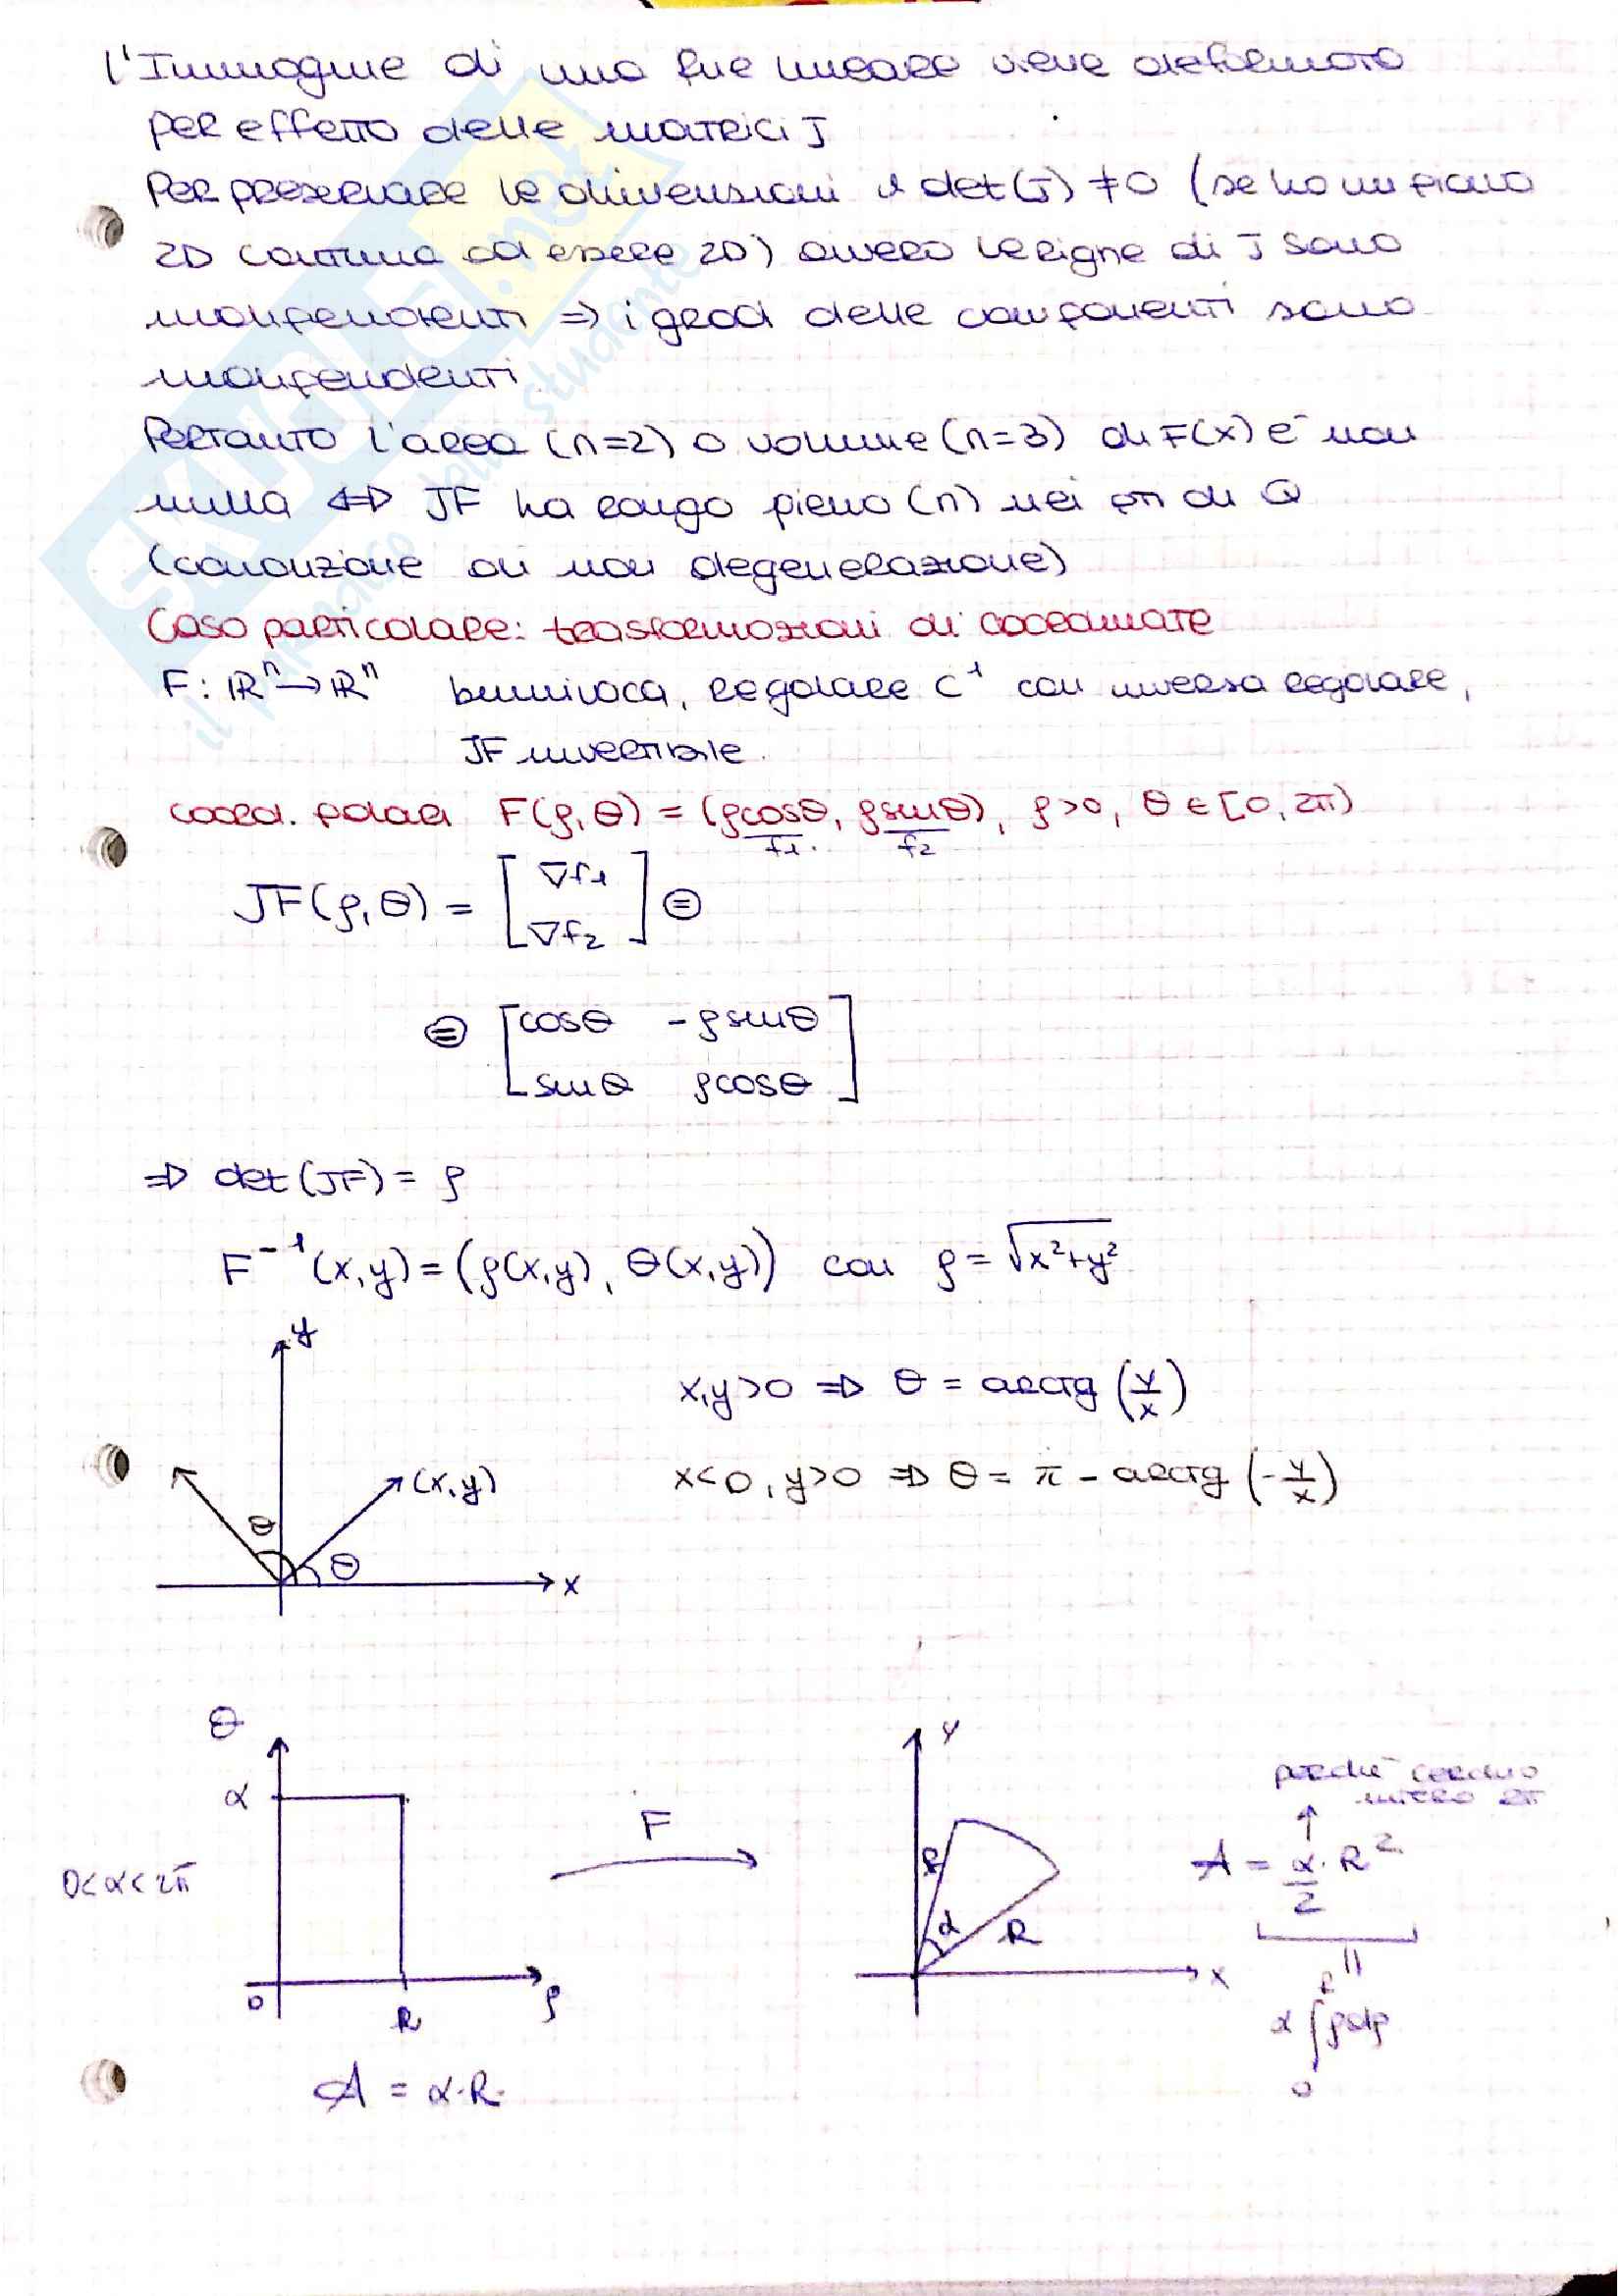 L'Immagine di una fne lineare viene deformata
per effetto delle matrici J
Per preservare le dimensioni il det(J) ≠ 0 (se ho un piano
2D continua ad essere 2D) ovvero le righe di J sono
indipendenti ⇒ i grad delle componenti sono
indipendenti.
Pertanto l'area (n=2) o volume (n=3) di F(x) è non
nulla ⇔ JF ha rango pieno (n) nei pti di Q
(condizione di non degenerazione)
Caso particolare: trasformazioni di coordinate
F: ℝⁿ → ℝⁿ biunivoca, regolare C¹ con inversa regolare,
JF invertibile.
coord. polari F(ρ,θ) = (ρcosθ, ρsinθ), ρ>0, θ∈[0,2π)
f₁. f₂
JF(ρ,θ) = [∇f₁
∇f₂] ⊜
⊜ [cosθ -ρsinθ
sinθ ρcosθ]
⇒ det(JF) = ρ
F⁻¹(x,y) = (ρ(x,y), θ(x,y)) con ρ = √x²+y²
y
x,y>0 ⇒ θ = arctg (y/x)
(x,y)
x<0, y>0 ⇒ θ = π - arctg (-y/x)
θ
θ
x
θ
α
0<α<2π
0
R
ρ
A = α·R.
F
y
R
α
R
x
perché cerchio
intero 2π
↑
A = α/2 · R²
||
α ∫₀ᴿ ρdρ
SKUOLA.net
il paradiso dello studente